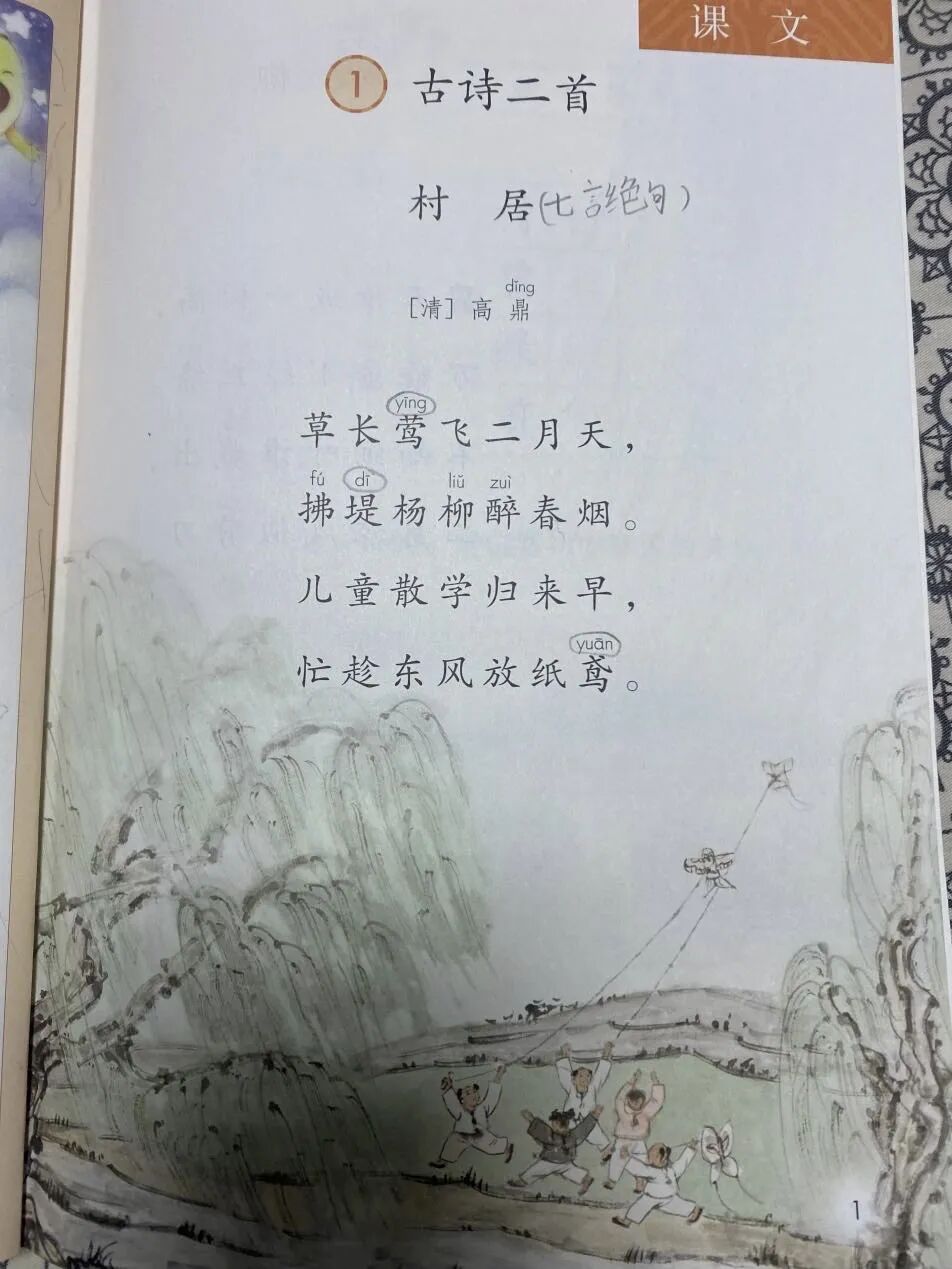 课 文
1 古诗二首
村 居(七言绝句)
dǐng
[清] 高 鼎
yīng
草长莺飞二月天，
fú dī liǔ zuì
拂堤杨柳醉春烟。
儿童散学归来早，
yuān
忙趁东风放纸鸢。
1